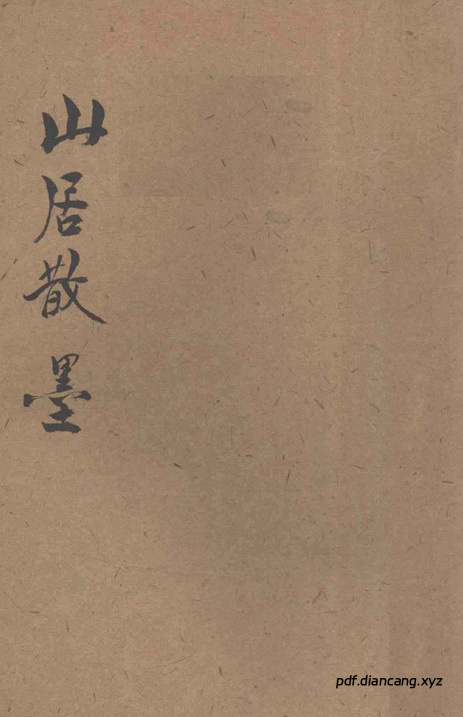 山居散墨
pdf.diancang.xyz